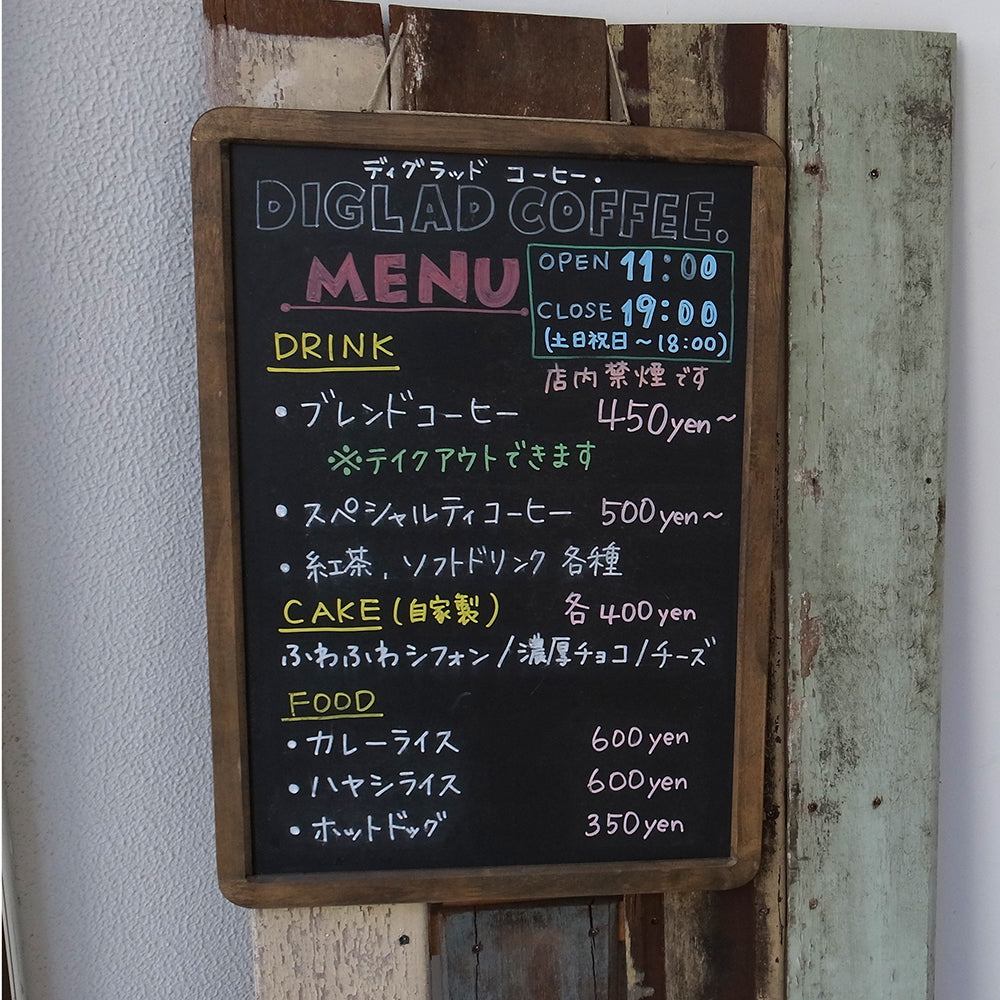 ディグラッド コーヒー.
DIGLAD COFFEE.
MENU
OPEN 11:00
CLOSE 19:00
(土日祝日~18:00)
DRINK
店内禁煙です
・ブレンドコーヒー 450yen~
※テイクアウトできます
・スペシャルティコーヒー 500yen~
・紅茶, ソフトドリンク 各種
CAKE (自家製) 各400yen
ふわふわシフォン/濃厚チョコ/チーズ
FOOD
・カレーライス 600yen
・ハヤシライス 600yen
・ホットドッグ 350yen